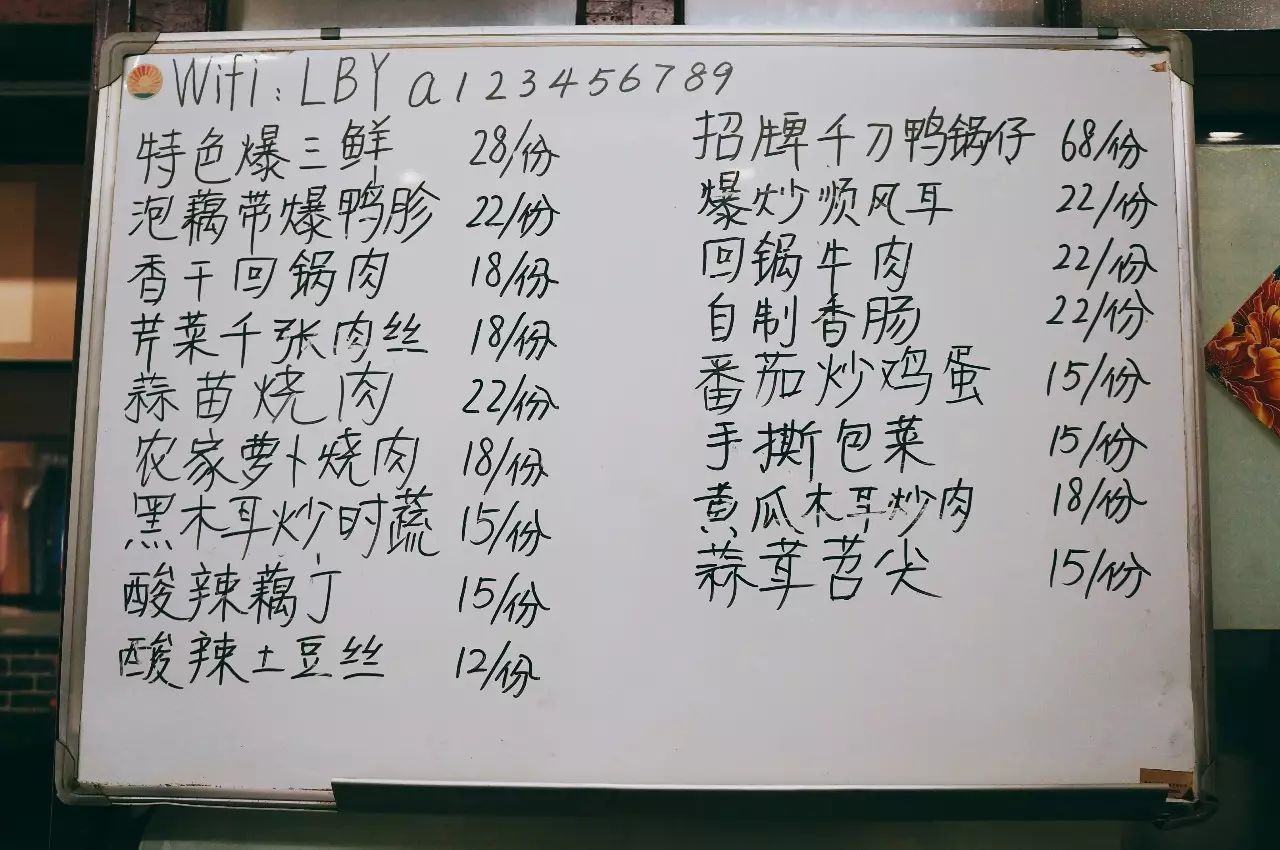 Wifi: LBY a123456789
特色爆三鲜 28/份
泡藕带爆鸭胗 22/份
香干回锅肉 18/份
芹菜千张肉丝 18/份
蒜苗烧肉 22/份
农家萝卜烧肉 18/份
黑木耳炒时蔬 15/份
酸辣藕丁 15/份
酸辣土豆丝 12/份
招牌千刀鸭锅仔 68/份
爆炒顺风耳 22/份
回锅牛肉 22/份
自制香肠 22/份
番茄炒鸡蛋 15/份
手撕包菜 15/份
黄瓜木耳炒肉 18/份
蒜茸苕尖 15/份